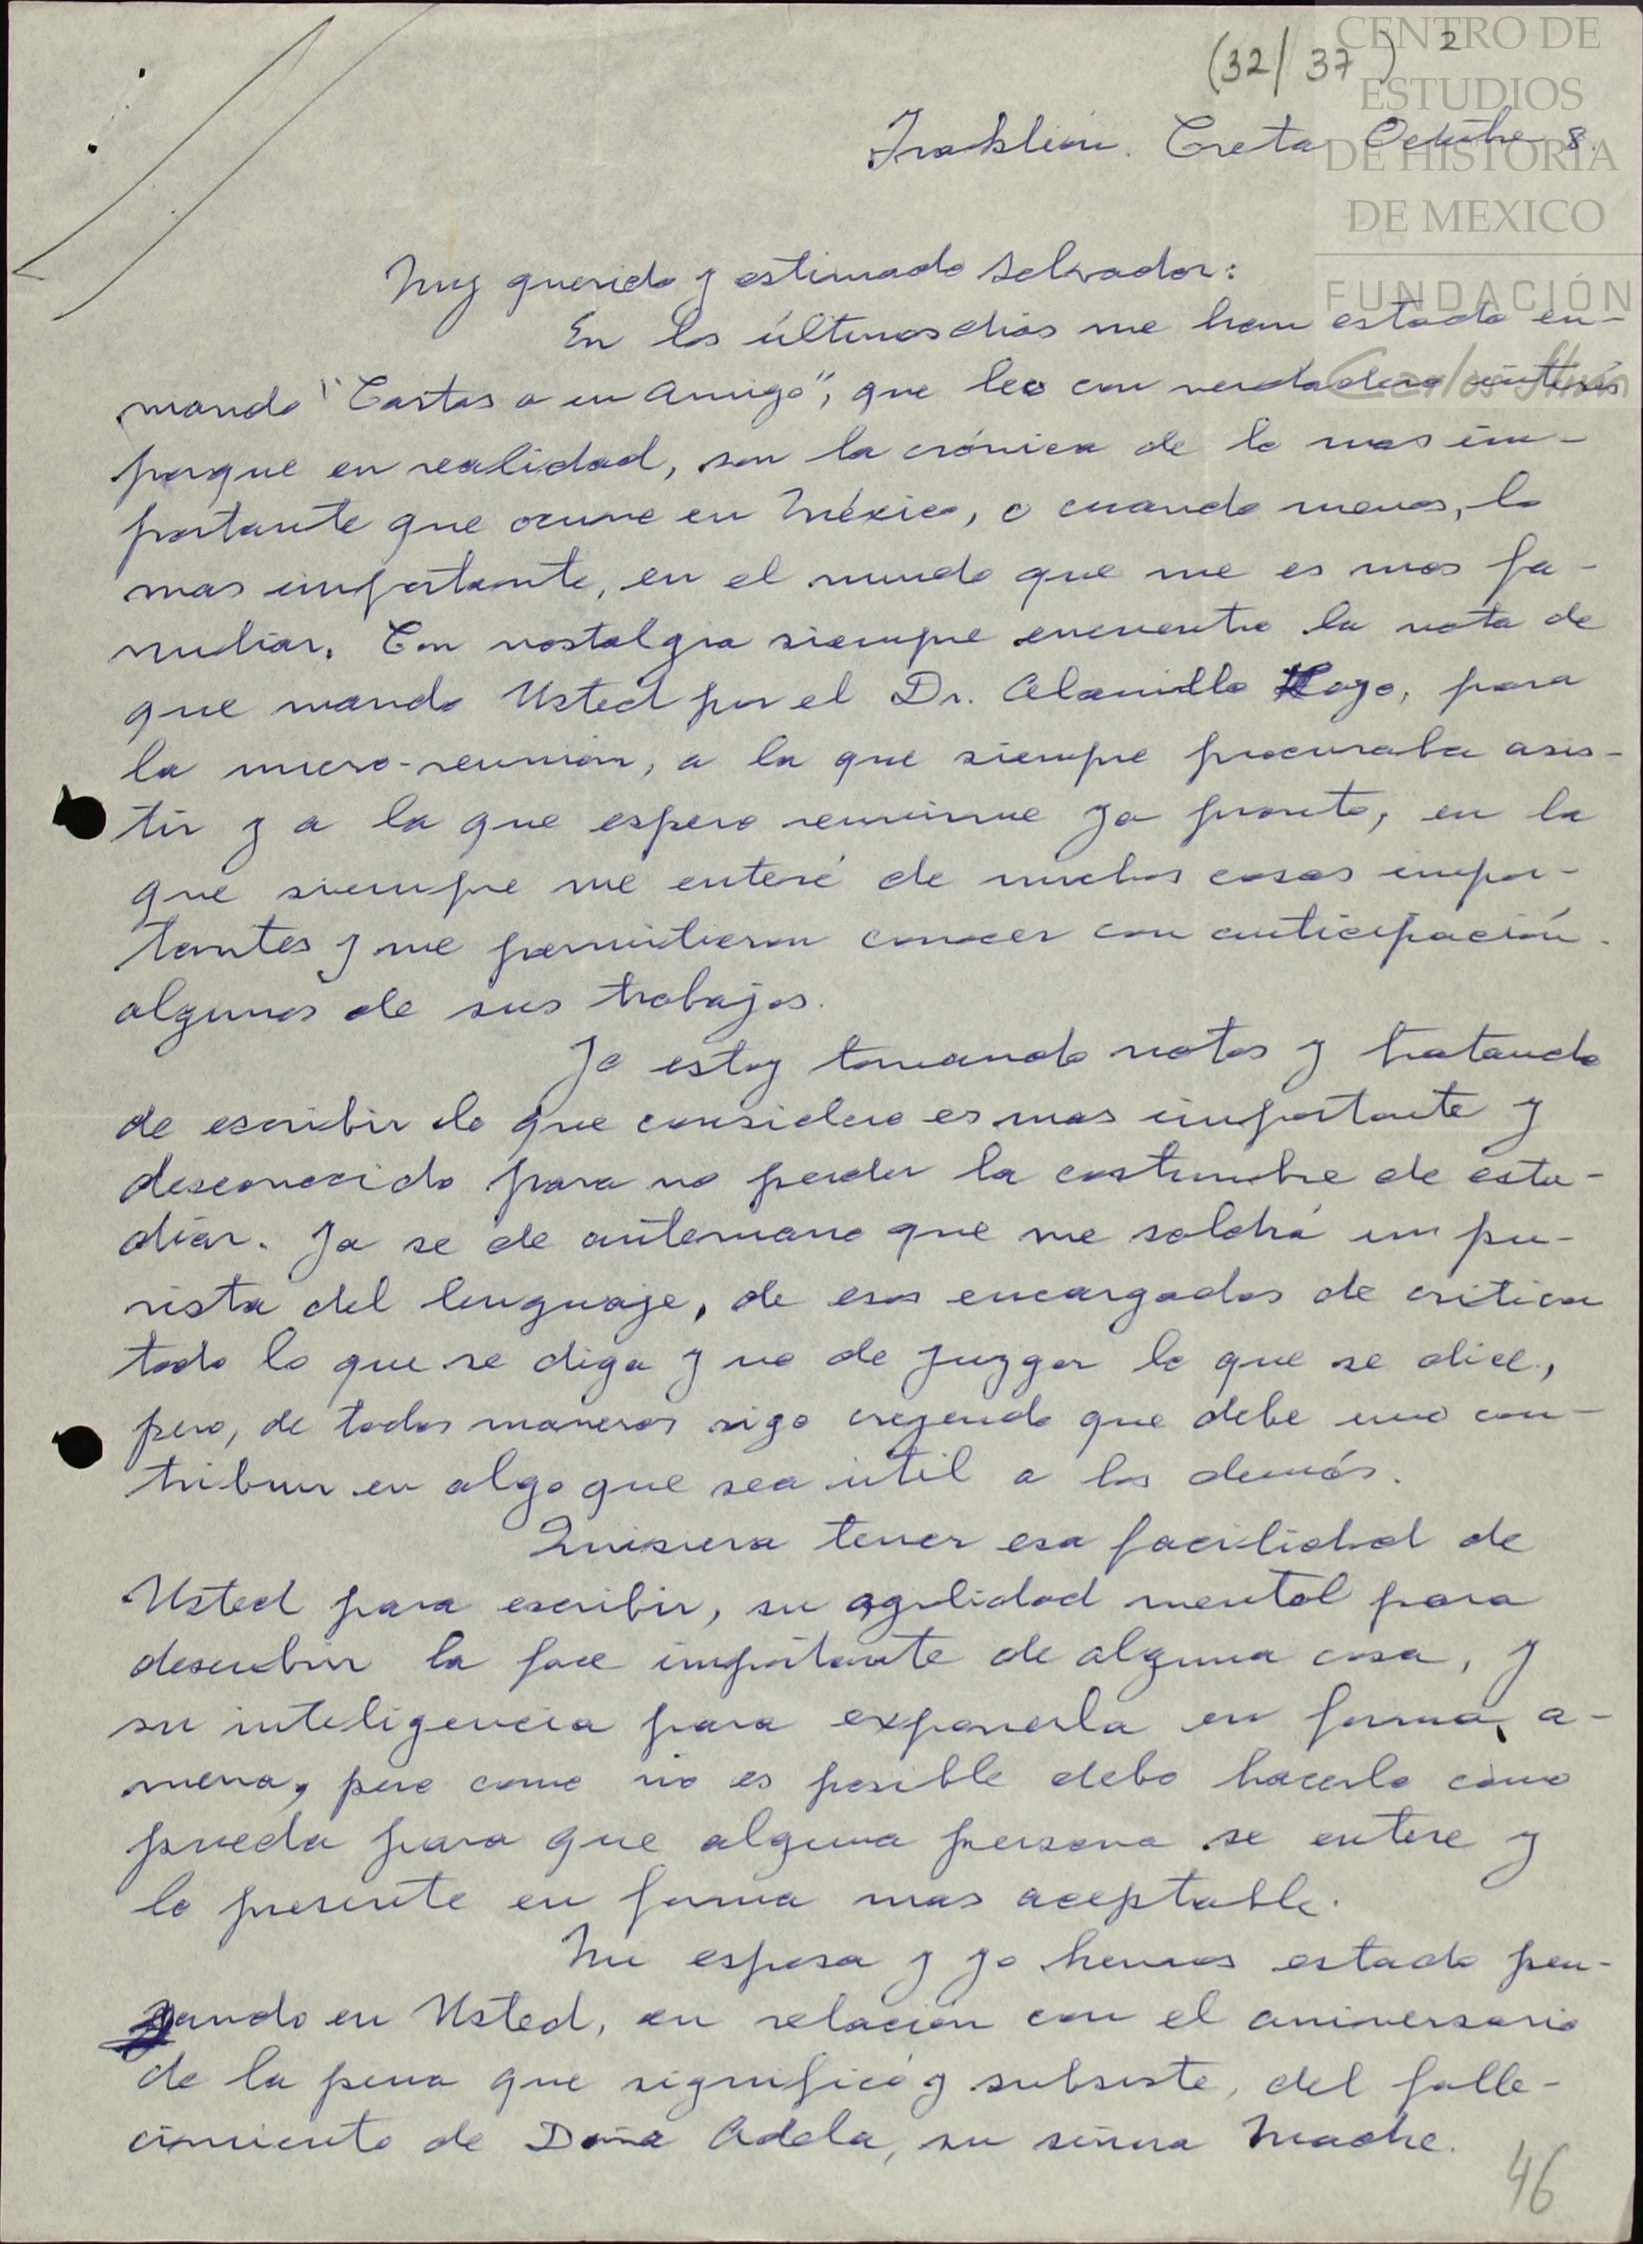 (32/37) 2
CENTRO DE
ESTUDIOS
DE HISTORIA
DE MEXICO
FUNDACIÓN
Carlos Slim
Iraklion. Creta Octubre 8.
Muy querido y estimado Salvador:
En los últimos dias me han estado en-
mando "Cartas a un Amigo", que leo con verdadero interés
porque en realidad, son la crónica de lo mas im-
portante que ocurre en México, o cuando menos, lo
mas importante, en el mundo que me es mas fa-
miliar. Con nostalgia siempre encuentro la nota de
que manda Usted por el Dr. Alamillo Hoyo, para
la micro-reunión, a la que siempre procuraba asis-
tir y a la que espero reunirme ya pronto, en la
que siempre me enteré de muchas cosas impor-
tantes y me permitieron conocer con anticipación
algunos de sus trabajos.
Yo estoy tomando notas y tratando
de escribir lo que considero es mas importante y
desconocido para no perder la costumbre de estu-
diar. Ya se de antemano que me saldrá un pu-
rista del lenguaje, de esos encargados de criticar
todo lo que se diga y no de juzgar lo que se dice,
pero, de todas maneras sigo creyendo que debe uno con-
tribuir en algo que sea útil a los demás.
Quisiera tener esa facilidad de
Usted para escribir, su agilidad mental para
descubrir la face importante de alguna cosa, y
su inteligencia para exponerla en forma a-
mena, pero como no es posible debo hacerlo como
pueda para que alguna persona se entere y
lo presente en forma mas aceptable.
Mi esposa y yo hemos estado pen-
sando en Usted, en relación con el aniversario
de la pena que significó y subsiste, del falle-
cimiento de Doña Adela, su señora Madre.
46